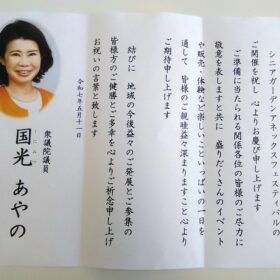 シニアガーデンアネックスフェスティバルの
ご開催を祝し 心よりお慶び申し上げます
ご準備に当たられる関係各位の皆様のご尽力に
敬意を表しますと共に 盛りだくさんのイベント
や販売・体験など楽しいこといっぱいの一日を
通して 皆様のご親睦益々深まりますこと心より
ご期待申し上げます
結びに 地域の今後益々のご発展とご参集の
皆様方のご健勝とご多幸を心よりご祈念申し上げ
お祝いの言葉と致します
令和七年五月十一日
衆議院議員
国光 あやの